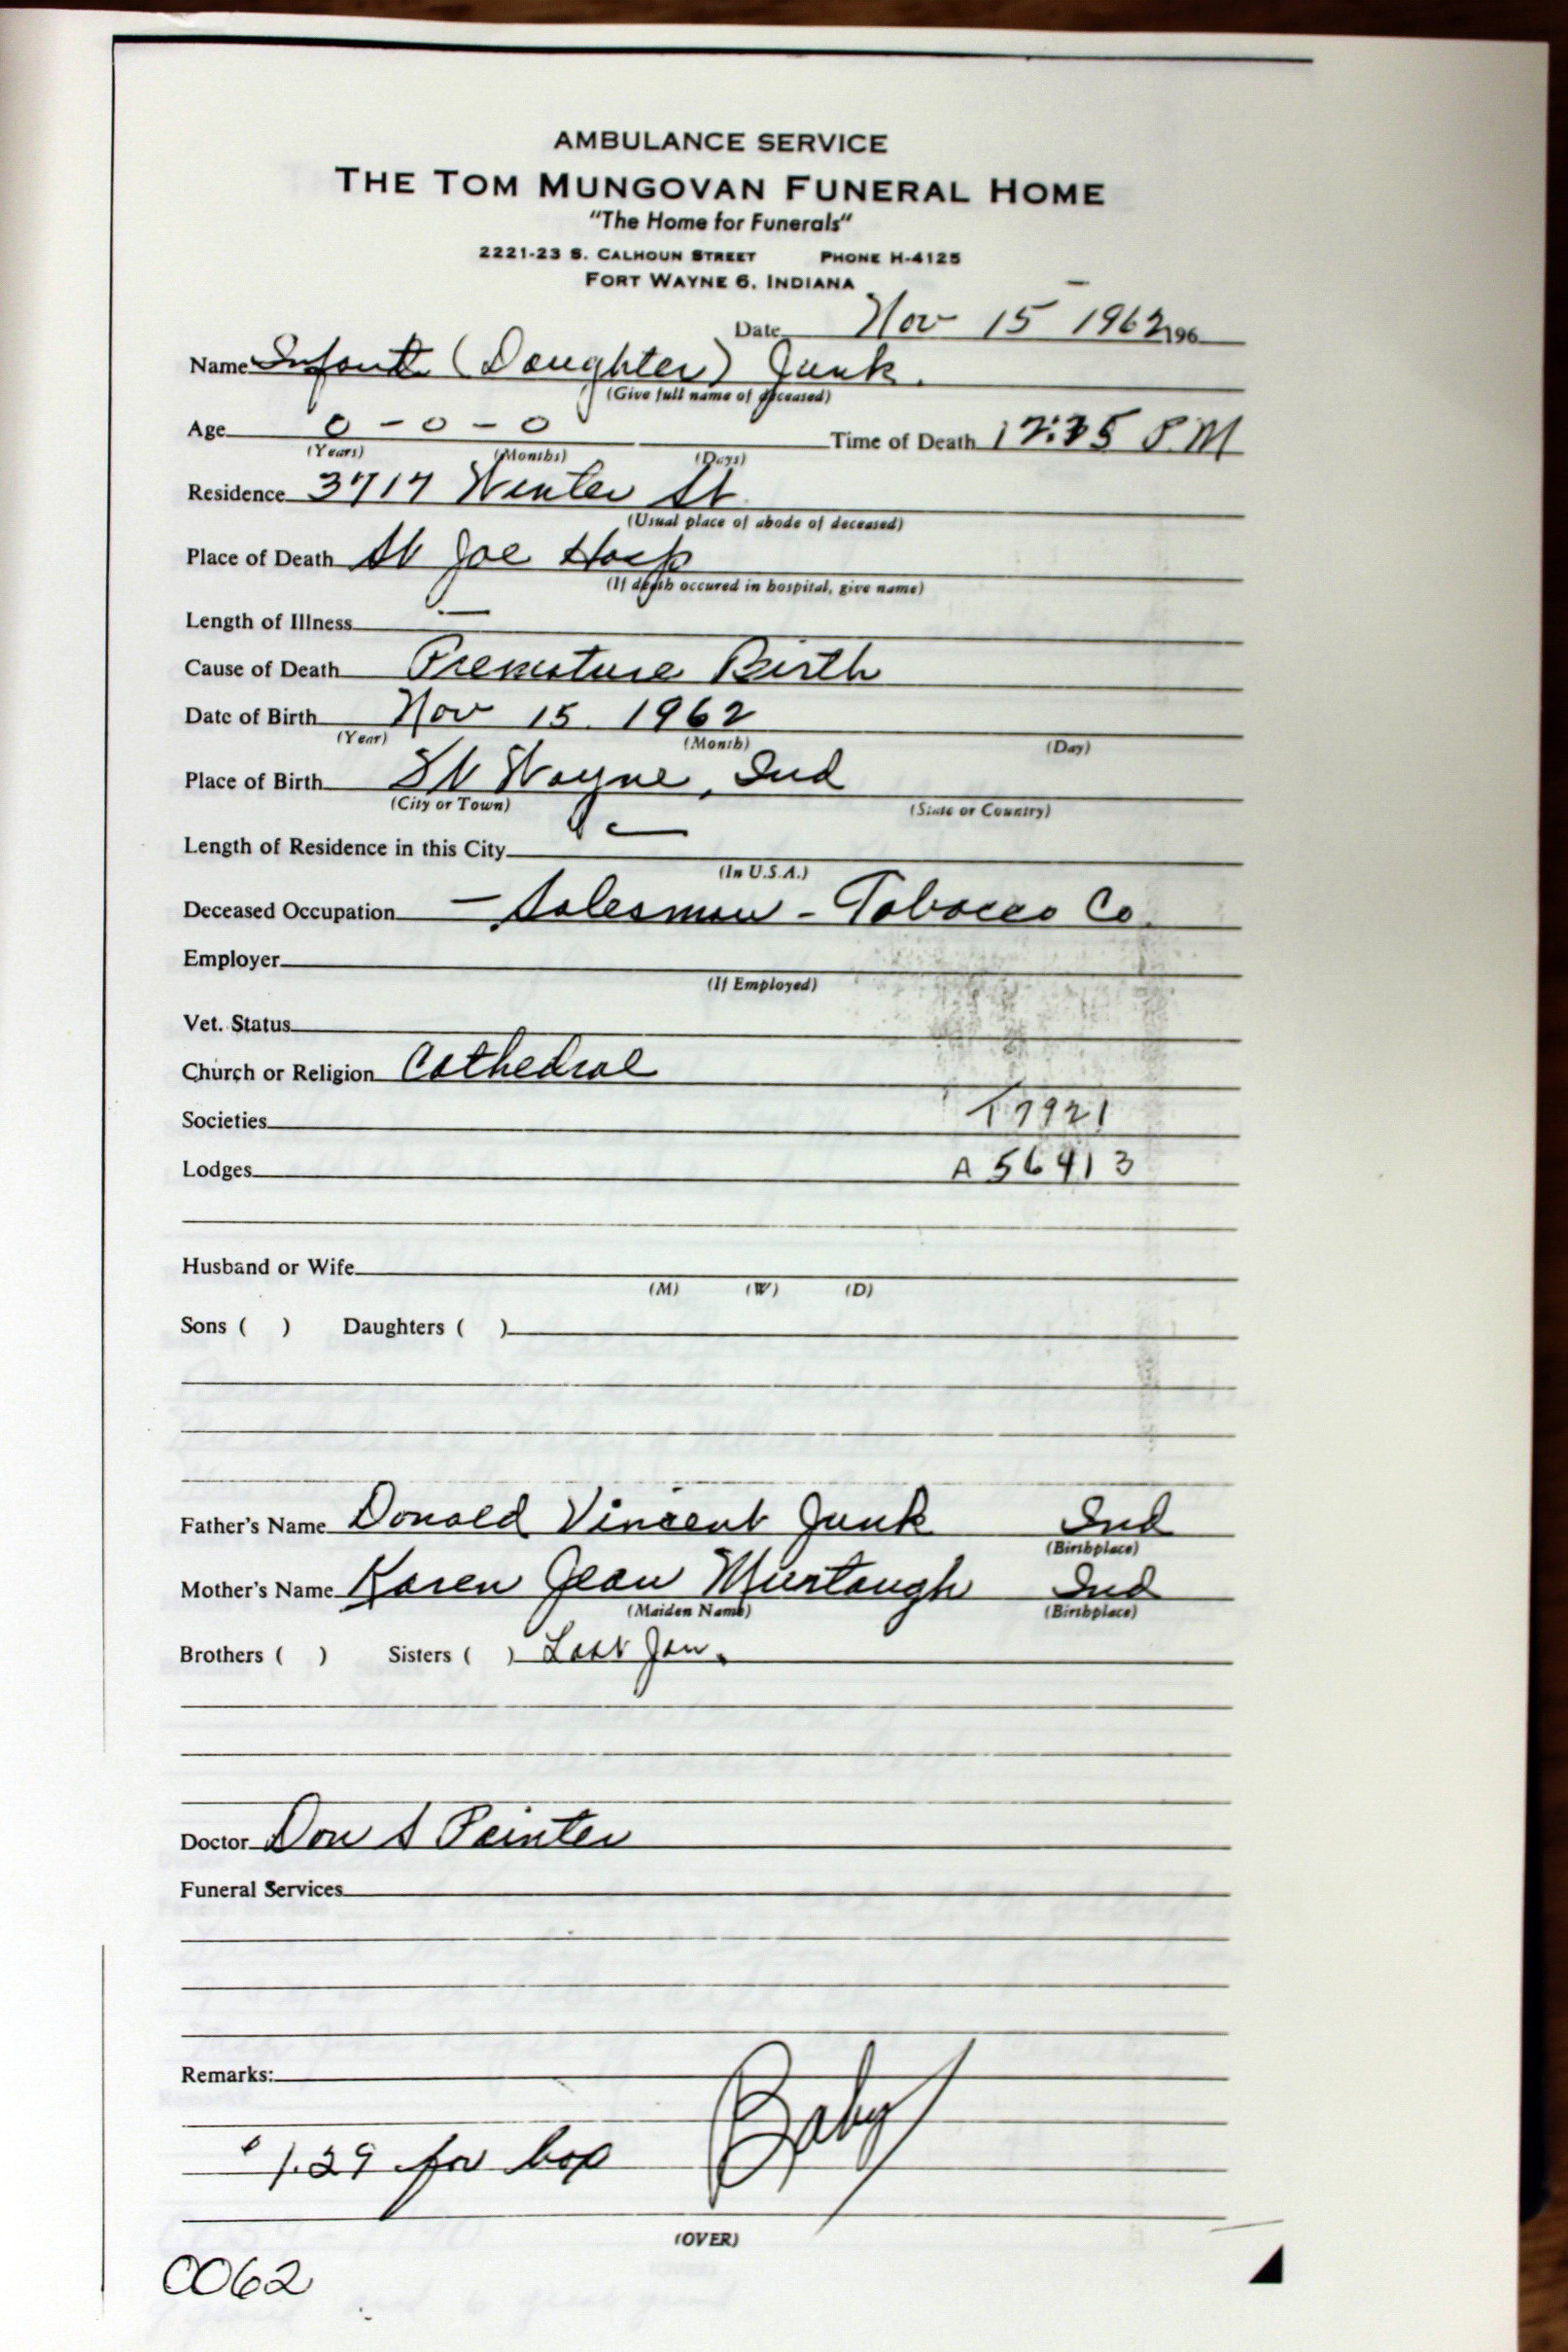 AMBULANCE SERVICE
THE TOM MUNGOVAN FUNERAL HOME
"The Home for Funerals"
2221-23 S. CALHOUN STREET PHONE H-4125
FORT WAYNE 6, INDIANA
Date Nov 15 1962 196
Name Infant (Daughter) Junk
(Give full name of deceased)
Age 0 - 0 - 0 Time of Death P.M
(Years) (Months) (Days)
Residence 3717 Winter St
(Usual place of abode of deceased)
Place of Death St Joe Hosp
(If death occured in hospital, give name)
Length of Illness —
Cause of Death Premature Birth
Date of Birth Nov 15 1962
(Year) (Month) (Day)
Place of Birth Ft Wayne, Ind
(City or Town) (State or Country)
Length of Residence in this City —
(In U.S.A.)
Deceased Occupation — Salesman - Tobacco Co.
Employer
(If Employed)
Vet. Status
Church or Religion Cathedral
Societies T7921
Lodges A 56413
Husband or Wife
(M) (W) (D)
Sons ( ) Daughters ( )
Father's Name Donald Vincent Junk Ind
(Birthplace)
Mother's Name Karen Jean Murtaugh Ind
(Maiden Name) (Birthplace)
Brothers ( ) Sisters ( ) Last Jan.
Doctor Don S Painter
Funeral Services
Remarks:
Baby
$1.29 for box
(OVER)
0062